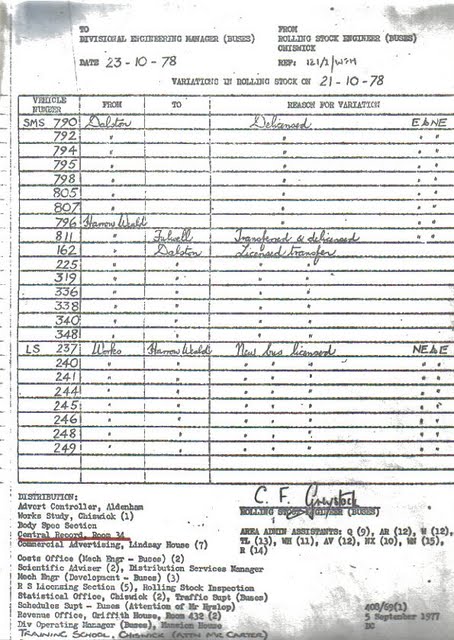 TO FROM
DIVISIONAL ENGINEERING MANAGER (BUSES) ROLLING STOCK ENGINEER (BUSES)
CHISWICK
DATE 23-10-78 REF: 121/2/WFH
VARIATIONS IN ROLLING STOCK ON 21-10-78
VEHICLE NUMBER FROM TO REASON FOR VARIATION
SMS 790 Dalston Delicensed E & N E
792 " " " "
794 " " " "
795 " " " "
798 " " " "
805 " " " "
807 " " " "
796 Harrow Weald " " "
811 " Fulwell Transferred & delicensed " "
162 " Dalston Licensed transfer
225 " " " "
319 " " " "
336 " " " "
338 " " " "
340 " " " "
348 " " " "
LS 237 Works Harrow Weald New bus licensed N E & E
240 " " " " " " "
241 " " " " " " "
244 " " " " " " "
245 " " " " " " "
246 " " " " " " "
248 " " " " " " "
249 " " " " " " "
DISTRIBUTION:
Advert Controller, Aldenham
Works Study, Chiswick (1)
Body Spec Section
Central Record, Room 34
Commercial Advertising, Lindsay House (7)
Costs Office (Mech Engr - Buses) (2)
Scientific Adviser (2), Distribution Services Manager
Mech Engr (Development - Buses) (3)
R S Licensing Section (5), Rolling Stock Inspection
Statistical Office, Chiswick (2), Traffic Supt (Buses)
Schedules Supt - Buses (Attention of Mr Hyslop)
Revenue Office, Griffith House, Room 432 (2)
Div Operating Manager (Buses), Mansion House
TRAINING SCHOOL, CHISWICK (ATTN MR CARTER)
C. F.
ROLLING STOCK ENGINEER (BUSES)
AREA ADMIN ASSISTANTS: Q (9), AR (12), W (12),
TL (13), WH (11), AV (12), HX (10) WN (15),
R (14)
408/69(1)
5 September 1977
DC